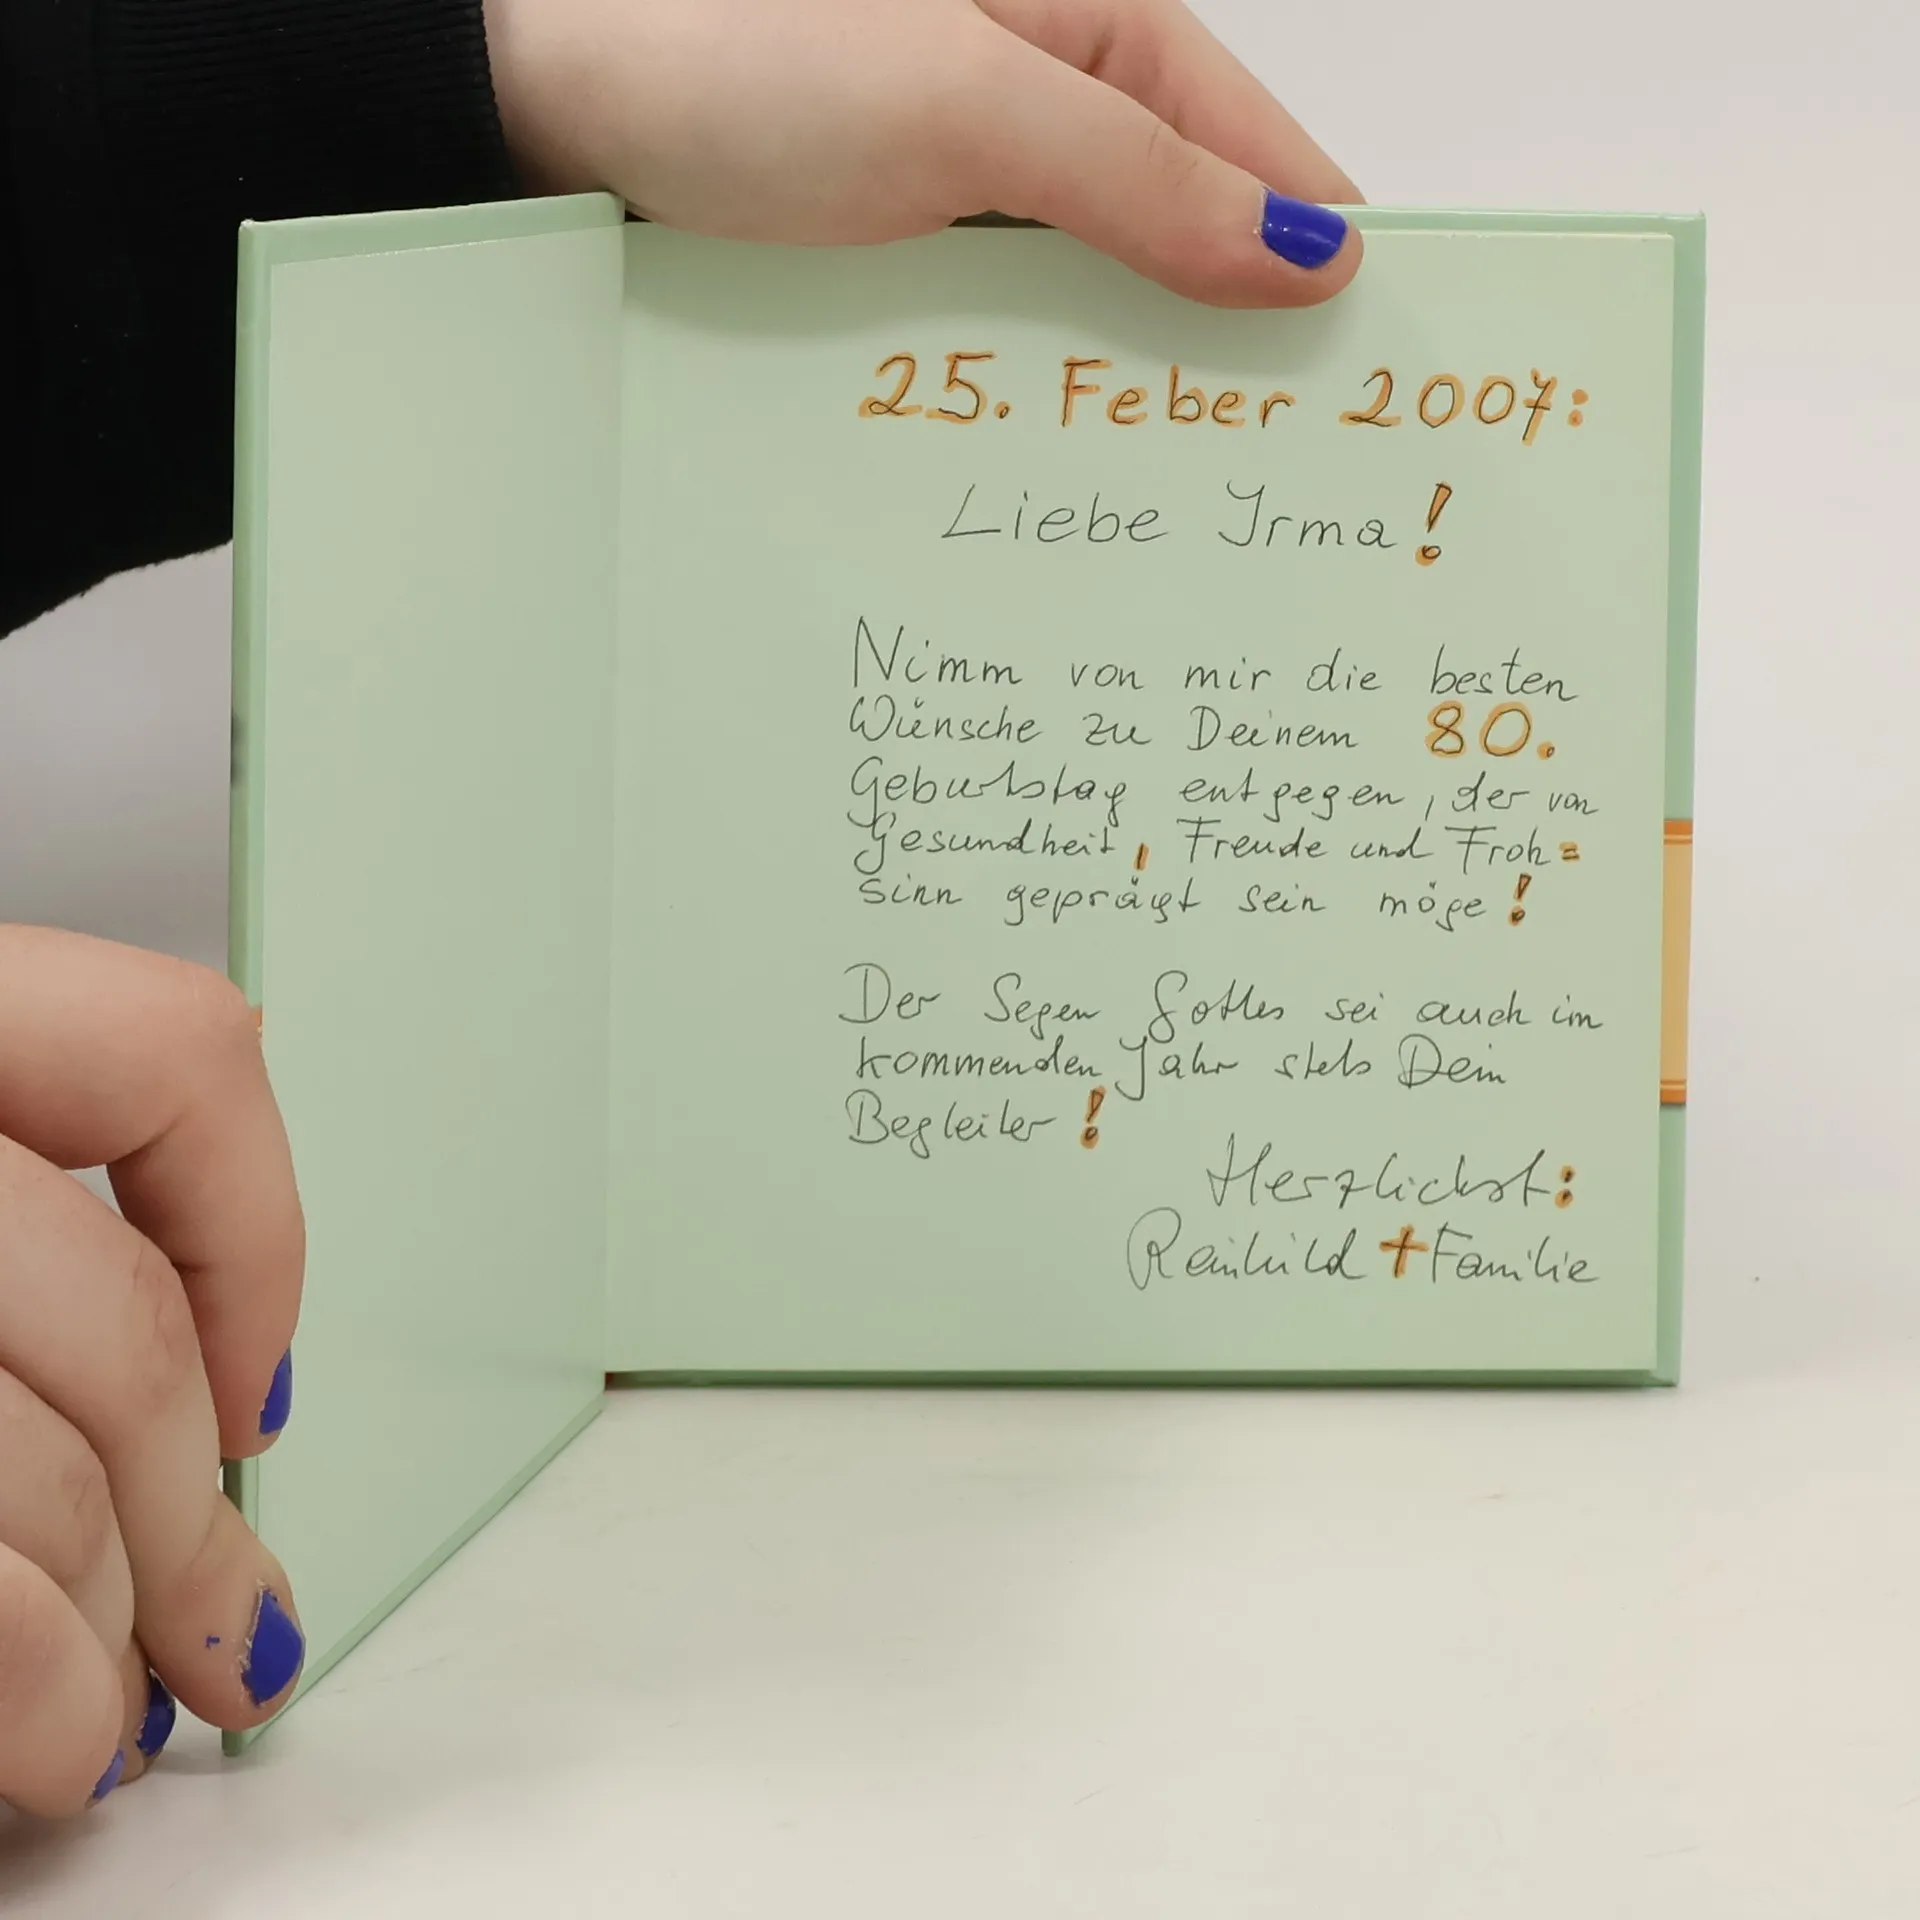 25. Feber 2007:
Liebe Irma!
Nimm von mir die besten
Wünsche zu Deinem 80.
Geburtstag entgegen, der von
Gesundheit, Freude und Froh=
sinn geprägt sein möge!
Der Segen Gottes sei auch im
kommenden Jahr stets Dein
Begleiter!
Herzlichst:
Reinhild + Familie